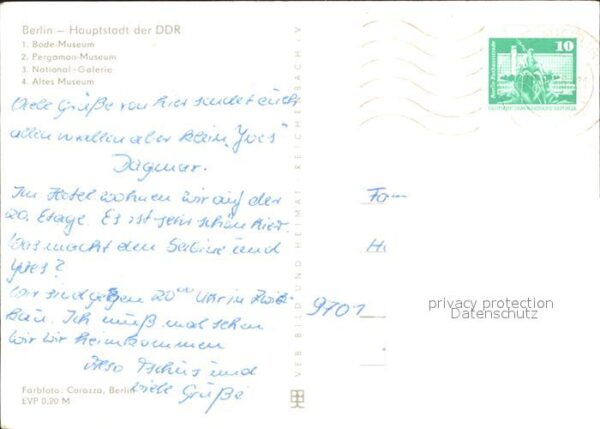 Berlin – Hauptstadt der DDR
1. Bode-Museum
2. Pergamon-Museum
3. National-Galerie
4. Altes Museum
Viele Grüße von hier sendet euch
allen vor allem aber klein "Yves"
Dagmar.
Im Hotel wohnen wir auf der
20. Etage. Es ist sehr schön hier.
Was macht denn Sabine und
Yves?
Wir sind gegen 20⁰⁰ Uhr in
Ich muß mal sehen
wir heimkommen
Also Tschüs und
Viele Grüße
Farbfoto: Carozza, Berlin
EVP 0,20 M
VEB BILD UND HEIMAT REICHENBACH I. V
10
DEUTSCHE DEMOKRATISCHE REPUBLIK
Fam
H
9701
privacy protection
Datenschutz